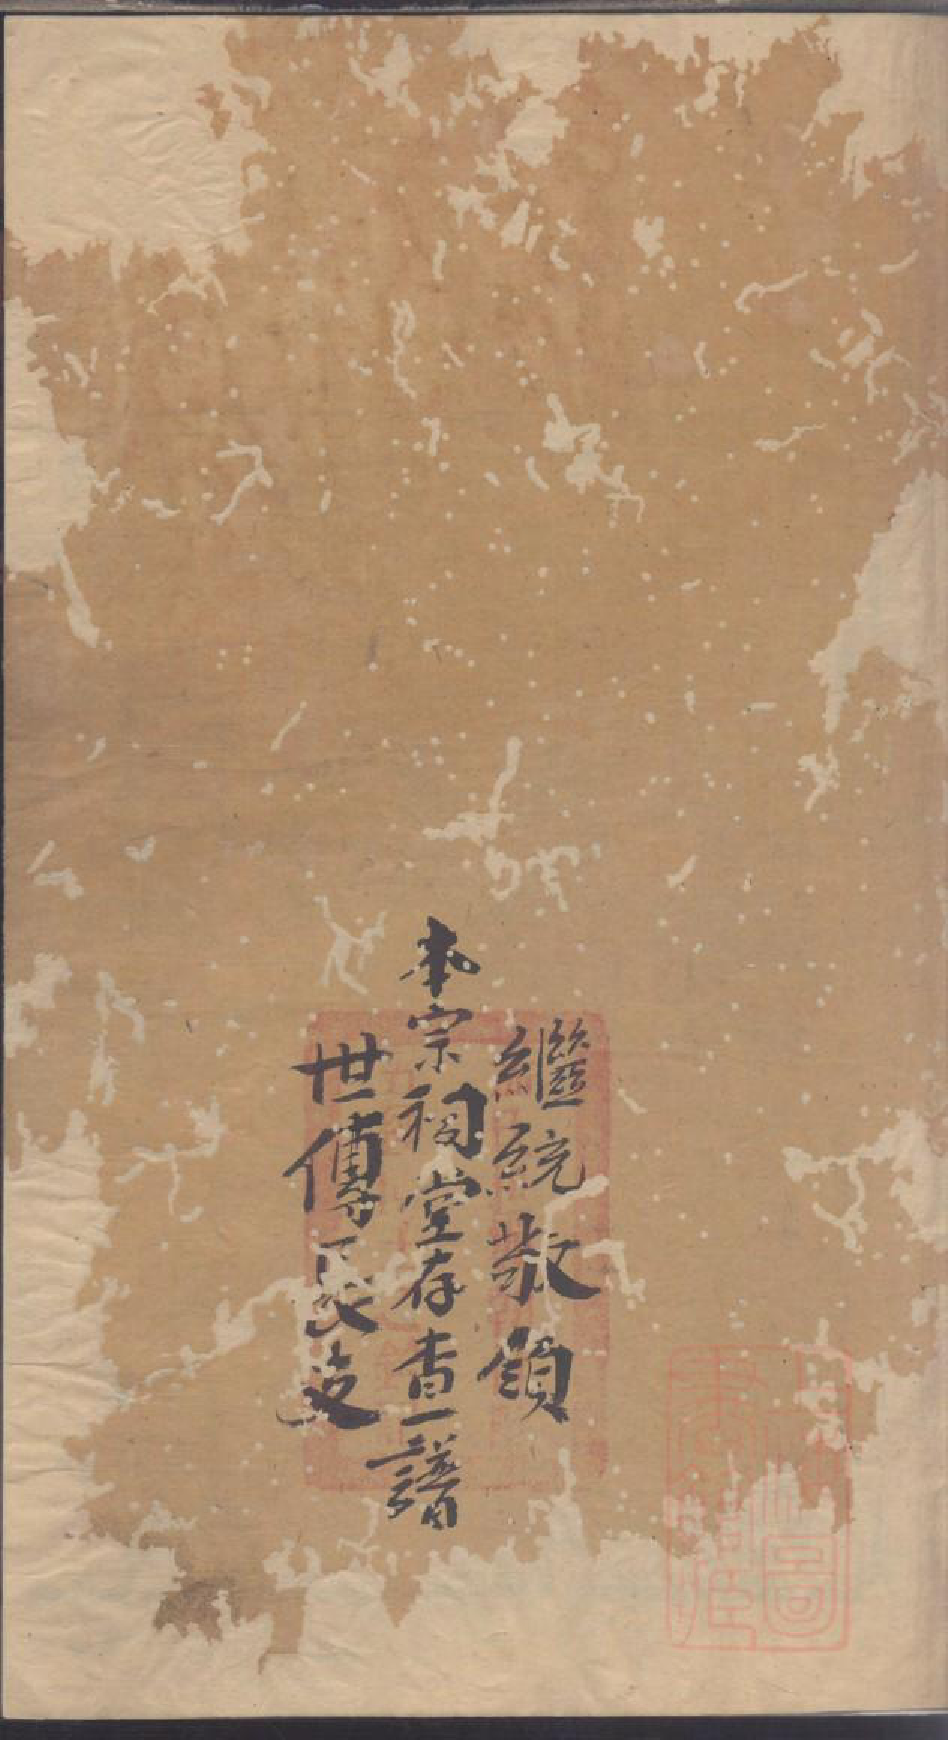 繼統敬領
本宗祠堂存查一譜
世傳